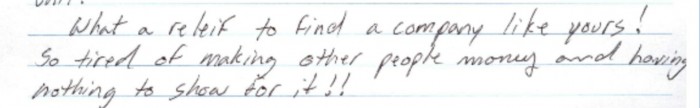 What a releif to find a company like yours!
So tired of making other people money and having
nothing to show for it!!